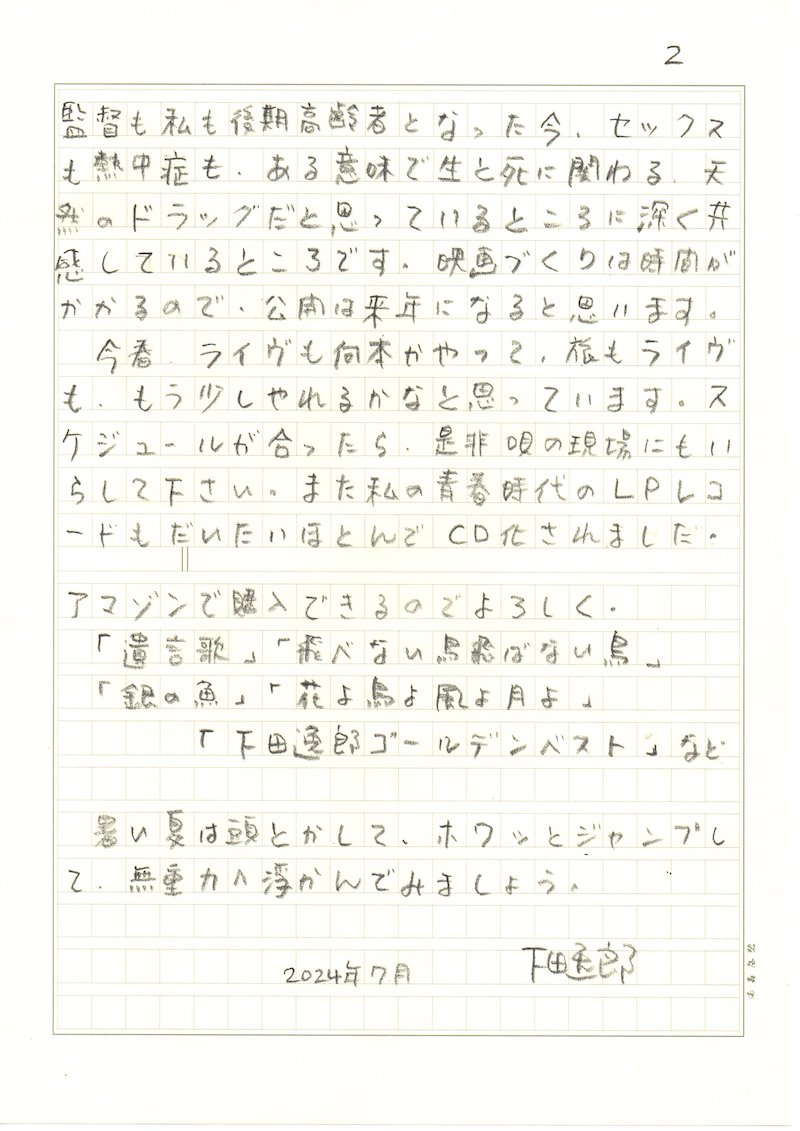 2
監督も私も後期高齢者となった今、セックス
も熱中症も、ある意味で生と死に関わる、天
然のドラッグだと思っているところに深く共
感しているところです。映画づくりは時間が
かかるので、公開は来年になると思います。
今春、ライヴも何本かやって、旅もライヴ
も、もう少しやれるかなと思っています。ス
ケジュールが合ったら、是非唄の現場にもい
らして下さい。また私の青春時代のLPレコ
ードもだいたいほとんどCD化されました。
アマゾンで購入できるのでよろしく。
「遺言歌」「飛べない鳥飛ばない鳥」
「銀の魚」「花よ鳥よ風よ月よ」
「下田逸郎ゴールデンベスト」など
暑い夏は頭とかして、ホワッとジャンプし
て、無重力へ浮かんでみましょう。
2024年7月 下田逸郎